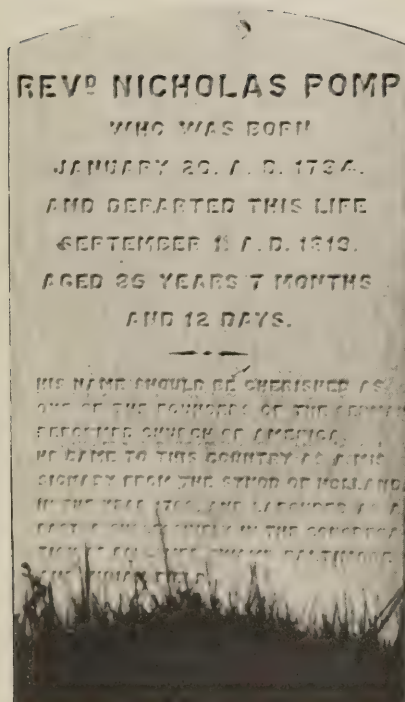 REVD NICHOLAS POMP
WHO WAS BORN
JANUARY 20. A. D. 1734.
AND DEPARTED THIS LIFE
SEPTEMBER 1 A. D. 1819.
AGED 85 YEARS 7 MONTHS
AND 12 DAYS.
HIS NAME SHOULD BE CHERISHED AS
ONE OF THE FOUNDERS OF THE GERMAN
REFORMED CHURCH OF AMERICA.
HE CAME TO THIS COUNTRY AS A MIS
SIONARY FROM THE SYNOD OF HOLLAND,
IN THE YEAR AND LABORED AS A
IN THE CONGREGA
SWAMP BALTIMORE
AND INDIAN FIELD